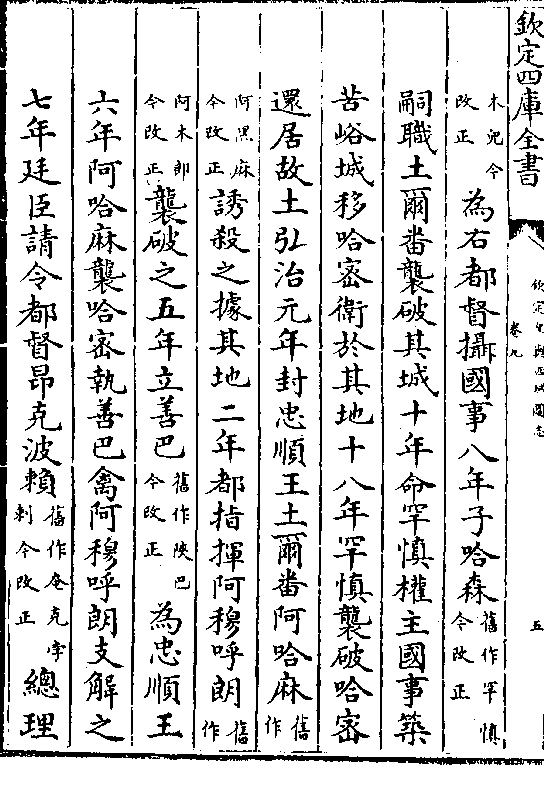 欽定四庫全書
欽定皇輿西域圖志
卷九
五
木兒今
改正
為右都督攝國事八年子哈森
舊作罕慎
今改正
嗣職土爾番襲破其城十年命罕慎權主國事築
苦峪城移哈密衛於其地十八年罕慎襲破哈密
還居故土弘治元年封忠順王土爾番阿哈麻
舊
作
阿黑麻
今改正
誘殺之據其地二年都指揮阿穆呼朗
舊
作
阿木郎
今改正
襲破之五年立善巴
舊作陜巴
今改正
為忠順王
六年阿哈麻襲哈密執善巴禽阿穆呼朗支解之
七年廷臣請令都督昂克波賴
舊作奄克孛
剌今改正
總理